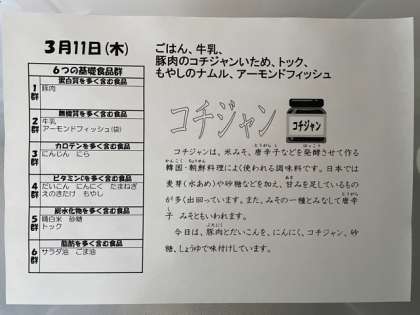 3月11日(木)
ごはん、牛乳、
豚肉のコチジャンいため、トック、
もやしのナムル、アーモンドフィッシュ
6つの基礎食品群
蛋白質を多く含む食品
1群
豚肉
無機質を多く含む食品
2群
牛乳
アーモンドフィッシュ(袋)
カロテンを多く含む食品
3群
にんじん にら
ビタミンCを多く含む食品
4群
だいこん にんにく たまねぎ
えのきたけ もやし
炭水化物を多く含む食品
5群
精白米 砂糖
トック
脂肪を多く含む食品
6群
サラダ油 ごま油
コチジャン
コチジャン
コチジャンは、米みそ、唐辛子などを発酵させて作る
韓国・朝鮮料理によく使われる調味料です。日本では
麦芽(水あめ)や砂糖などを加え、甘みを足しているもの
が多く出回っています。また、みその一種とみなして唐辛
子みそともいわれます。
今日は、豚肉とだいこんを、にんにく、コチジャン、砂
糖、しょうゆで味付けしています。